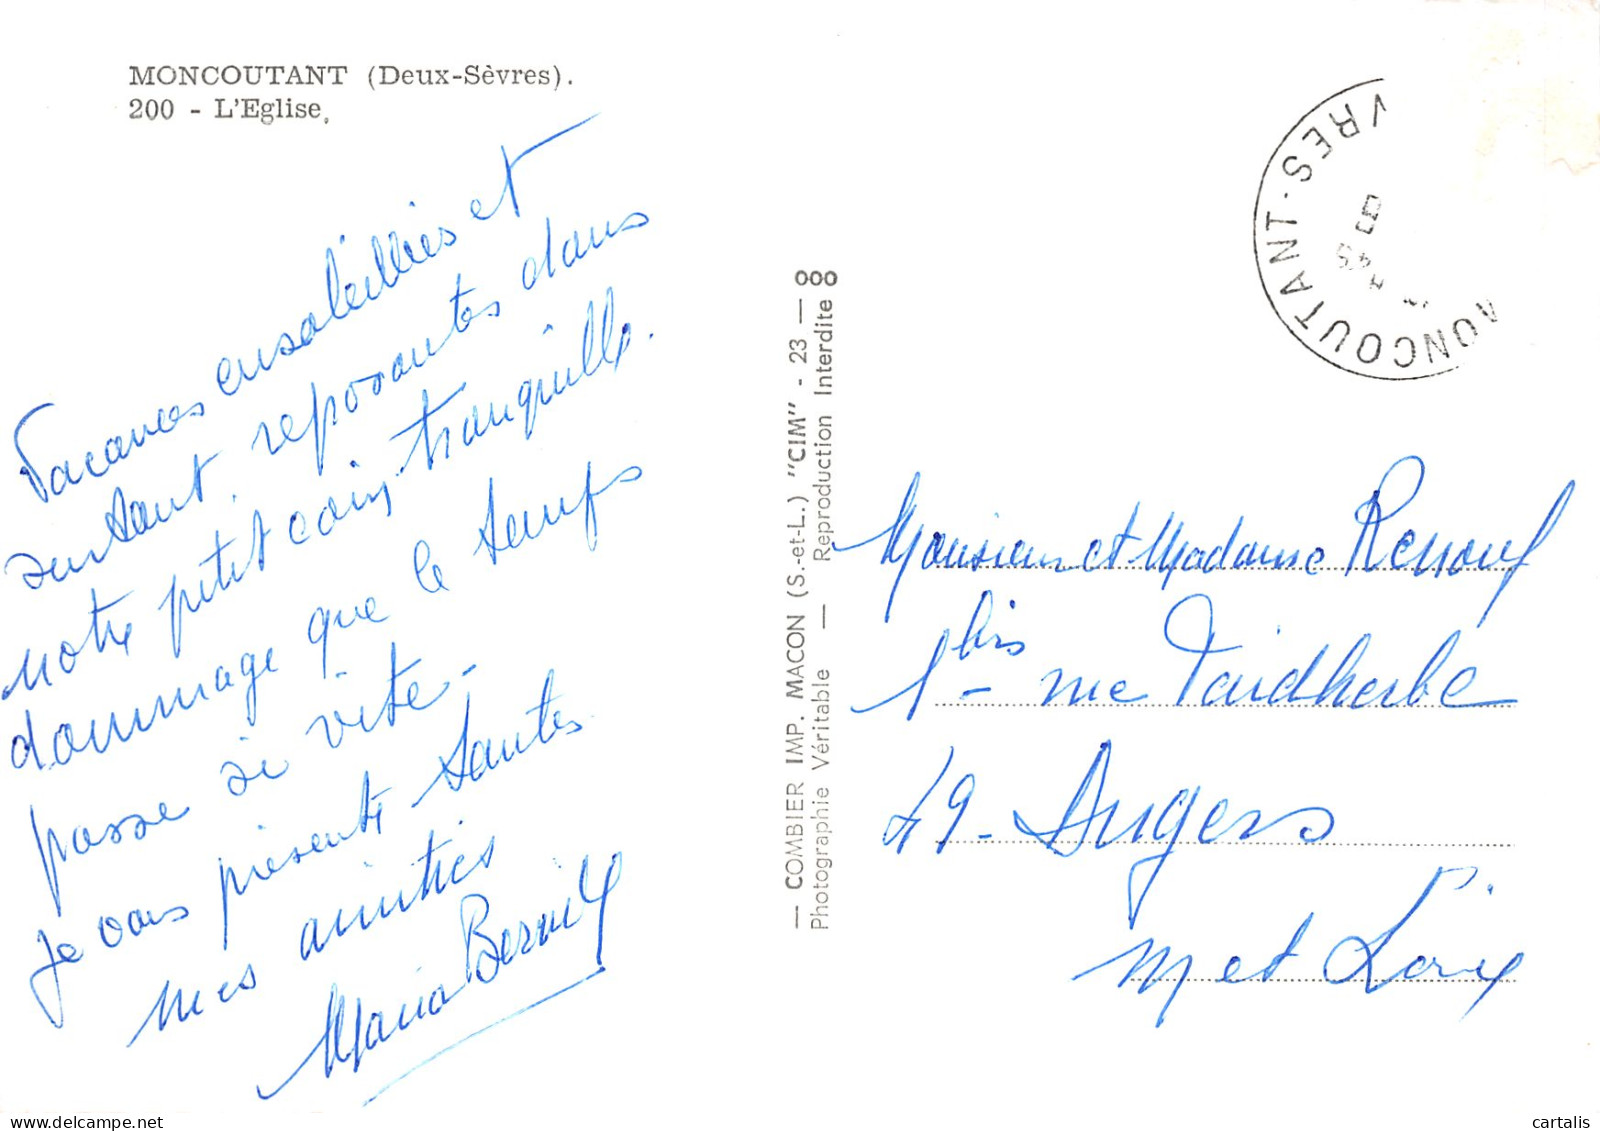 MONCOUTANT (Deux-Sèvres).
200 - L'Eglise.
Vacances ensoleillées et
surtout reposantes dans
notre petit coin tranquille.
dommage que le temps
passe si vite -
je vous présente toutes
mes amitiés
Maria
— COMBIER IMP. MACON (S.-et-L.) "CIM" - 23 — 000
Photographie Véritable — Reproduction Interdite
MONCOUTANT · VRES
Monsieur et Madame Renouf
1 bis rue Faidherbe
49 - Angers
M et Loire
cartalis